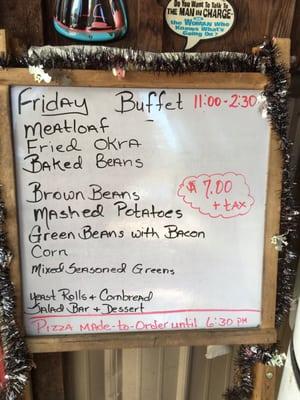 Do You Want To Talk To
THE MAN IN CHARGE
or the
WOMAN WHO KNOWS
WHAT'S
Going On?
Friday Buffet 11:00-2:30
Meatloaf
Fried Okra
Baked Beans
Brown Beans
Mashed Potatoes
Green Beans with Bacon
Corn
Mixed Seasoned Greens
$7.00
+ tax
Yeast Rolls + Cornbread
Salad Bar + Dessert
Pizza Made-to-Order until 6:30 PM